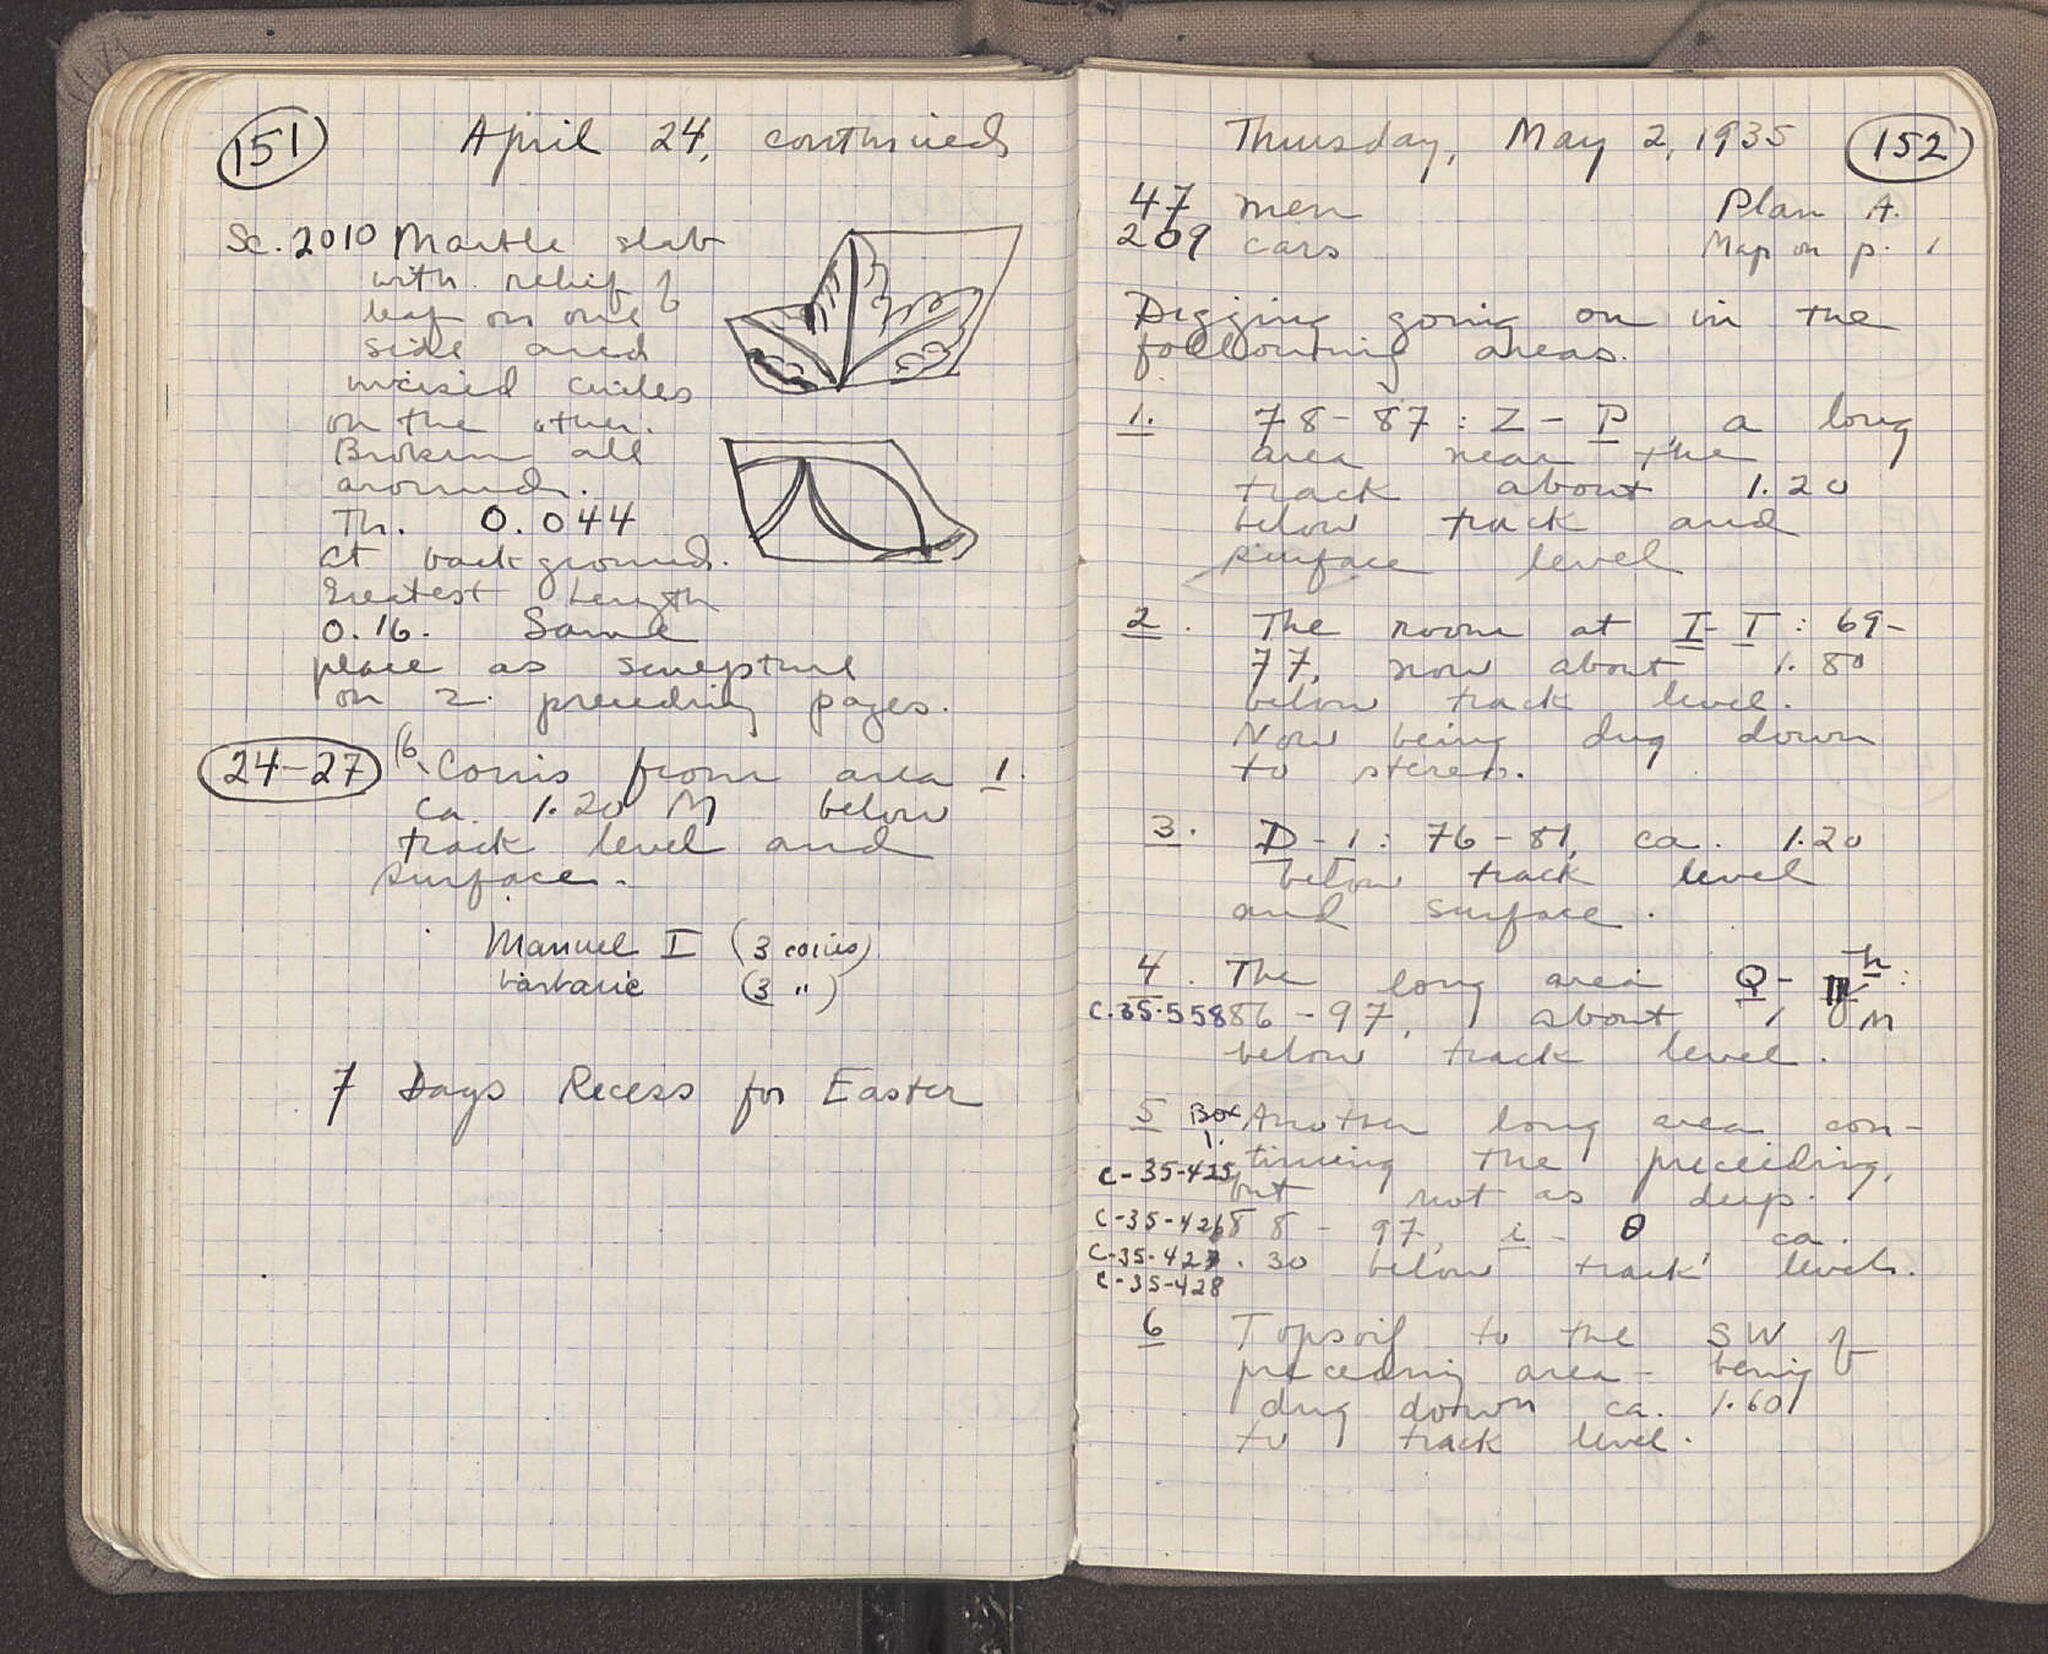 151
April 24, continued
Sc. 2010 Marble slab
with relief of
leaf on one
side and
incised circles
on the other.
Broken all
around.
Th. 0.044
at background.
Greatest Length
0.16. Same
place as sculpture
on 2 preceding pages.
24-27 6 Coins from area 1.
ca. 1.20 M below
track level and
surface.
Manuel I (3 coins)
barbaric (3 ")
7 Days Recess for Easter
Thursday, May 2, 1935 152
47 men Plan A.
209 cars Map on p. 1
Digging going on in the
following areas.
1. 78-87: Z - P, a long
area near the
track about 1.20
below track and
surface level
2. The room at I-T: 69-
77, now about 1.80
below track level.
Now being dug down
to stereo.
3. D-1: 76-81, ca. 1.20
below track level
and surface.
4. The long area Q-
C.35.558 86-97, about 1 M
below track level.
5 Box 1. Another long area con-
C-35-425 tinuing the preceeding,
but not as deep.
C-35-426 88-97, i - θ ca.
C-35-427 .30 below track level.
C-35-428
6 Topsoil to the SW of
preceding area - being
dug down ca. 1.60
to track level.